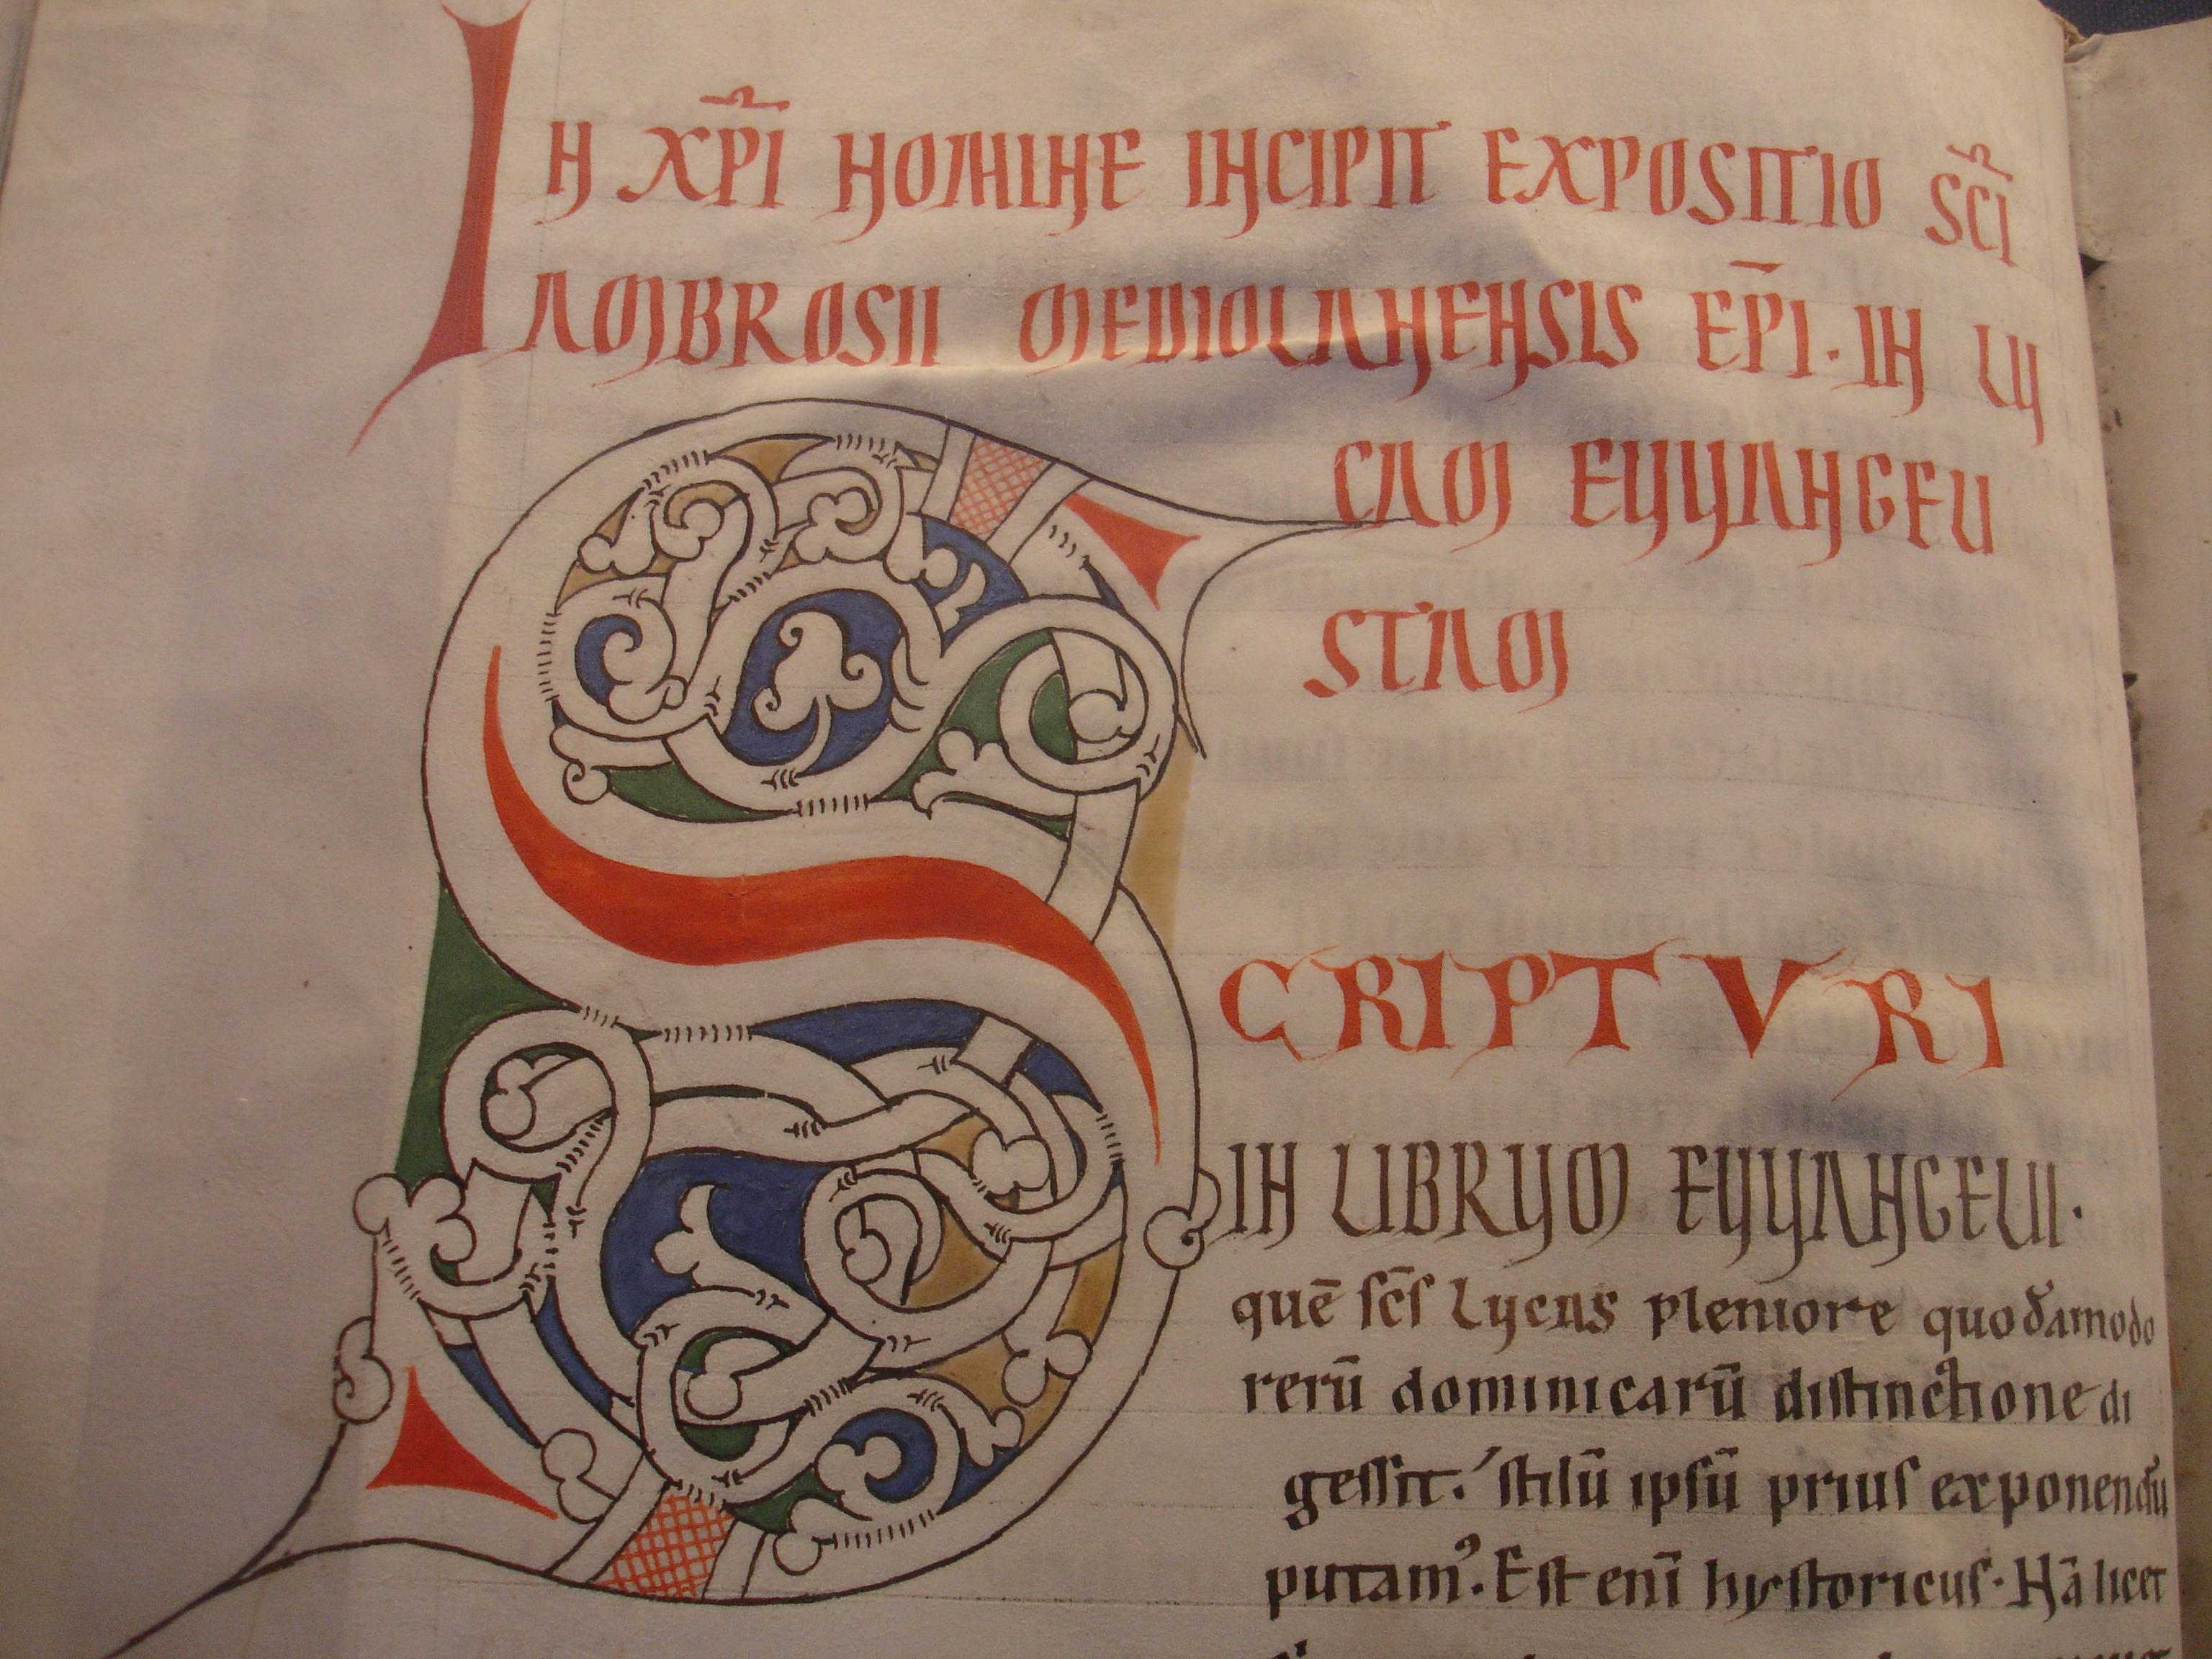 IN XP̄I NOMINE INCIPIT EXPOSITIO SC̄I
AMBROSII MEDIOLANENSIS EP̄I · IN LU
CAM EUUANGELI
STAM
SCRIPTURI
IN LIBRUM EUUANGELII ·
quē ſc̄ſ Lycas pleniore quodamodo
rerū dominicarū diſtinctione di
geſſit. ſtilū ipſū priuſ exponendū
putamꝰ. Eſt enī hyſtoricuſ · Nā licet